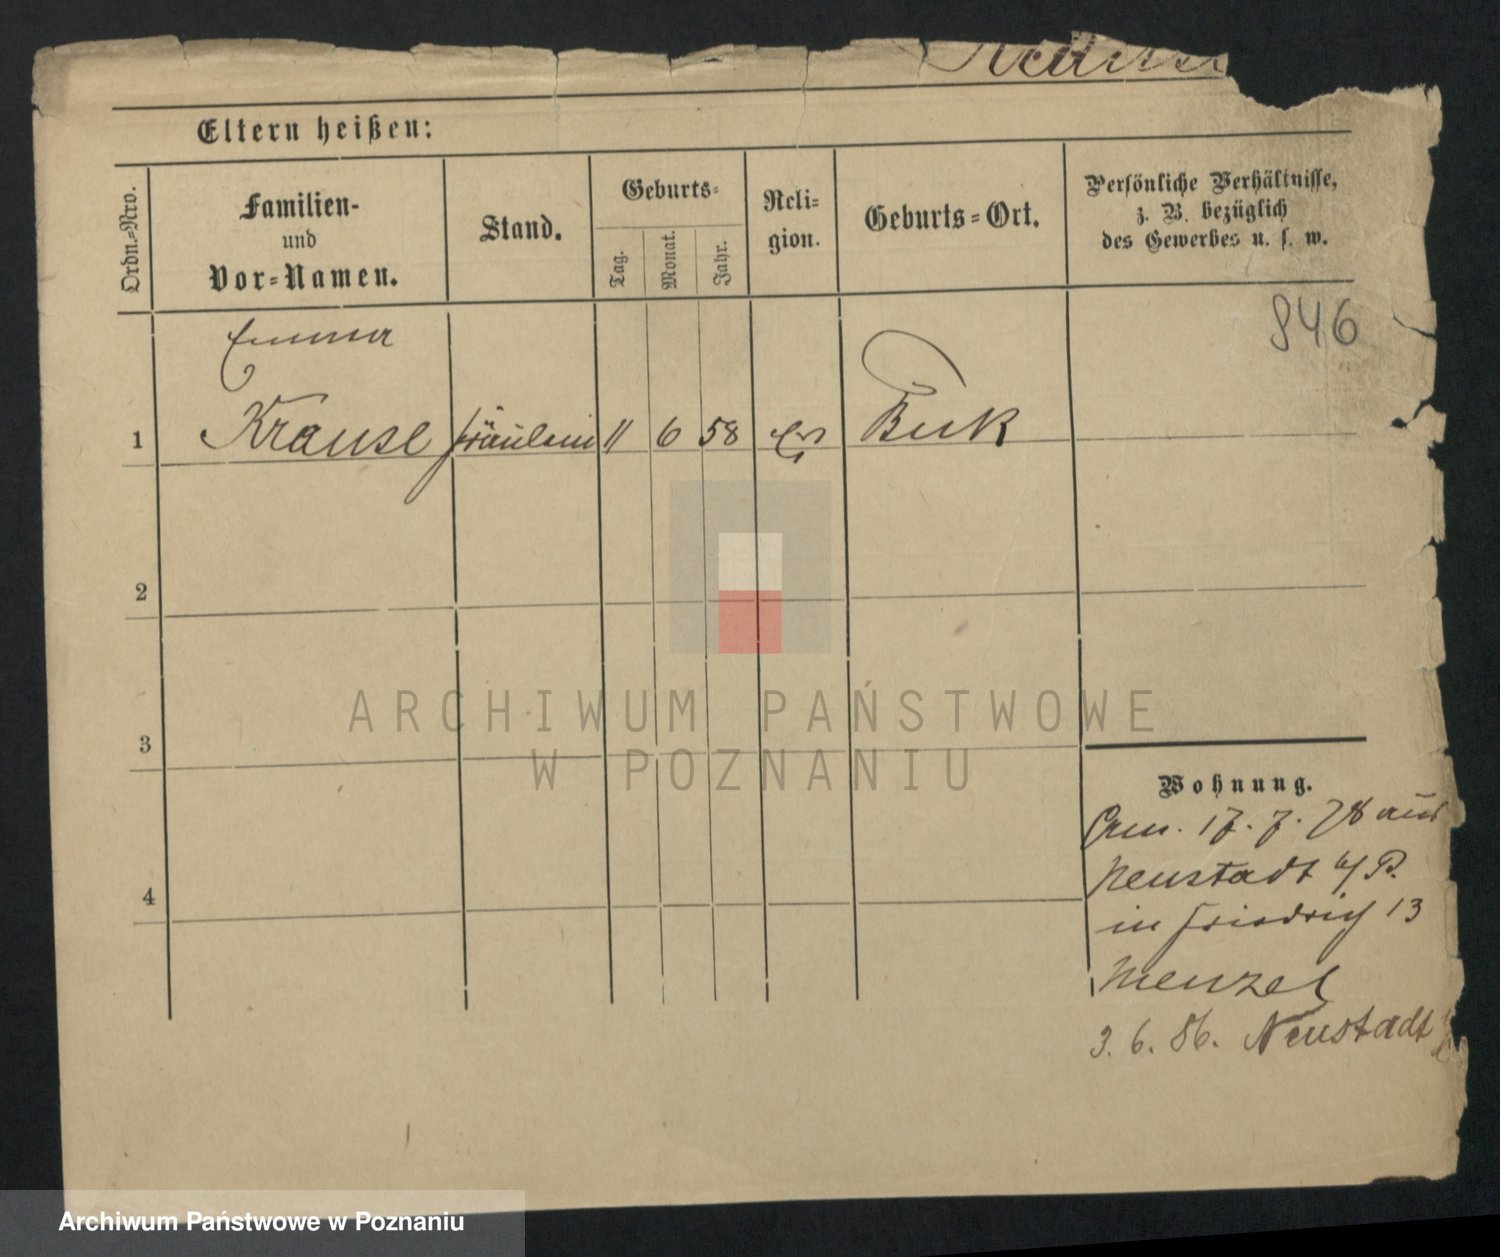 Eltern heißen:
Ordn.=Nro.
Familien-
und
Vor=Namen.
Stand.
Geburts=
Tag.
Monat.
Jahr.
Reli=
gion.
Geburts=Ort.
Persönliche Verhältnisse,
z. B. bezüglich
des Gewerbes u. s. w.
946
Emma
1 Krause Fräulein 11 6 58 Ev Buk
2
3
4
ARCHIWUM PAŃSTWOWE
W POZNANIU
Wohnung.
17. 7. 78 aus
Neustadt b/P.
in Friedrich 13
Menzel
3. 6. 86. Neustadt
Archiwum Państwowe w Poznaniu